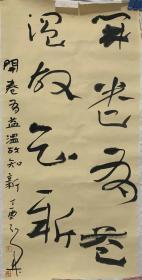 開卷有益
温故知新
開卷有益温故知新 丁酉